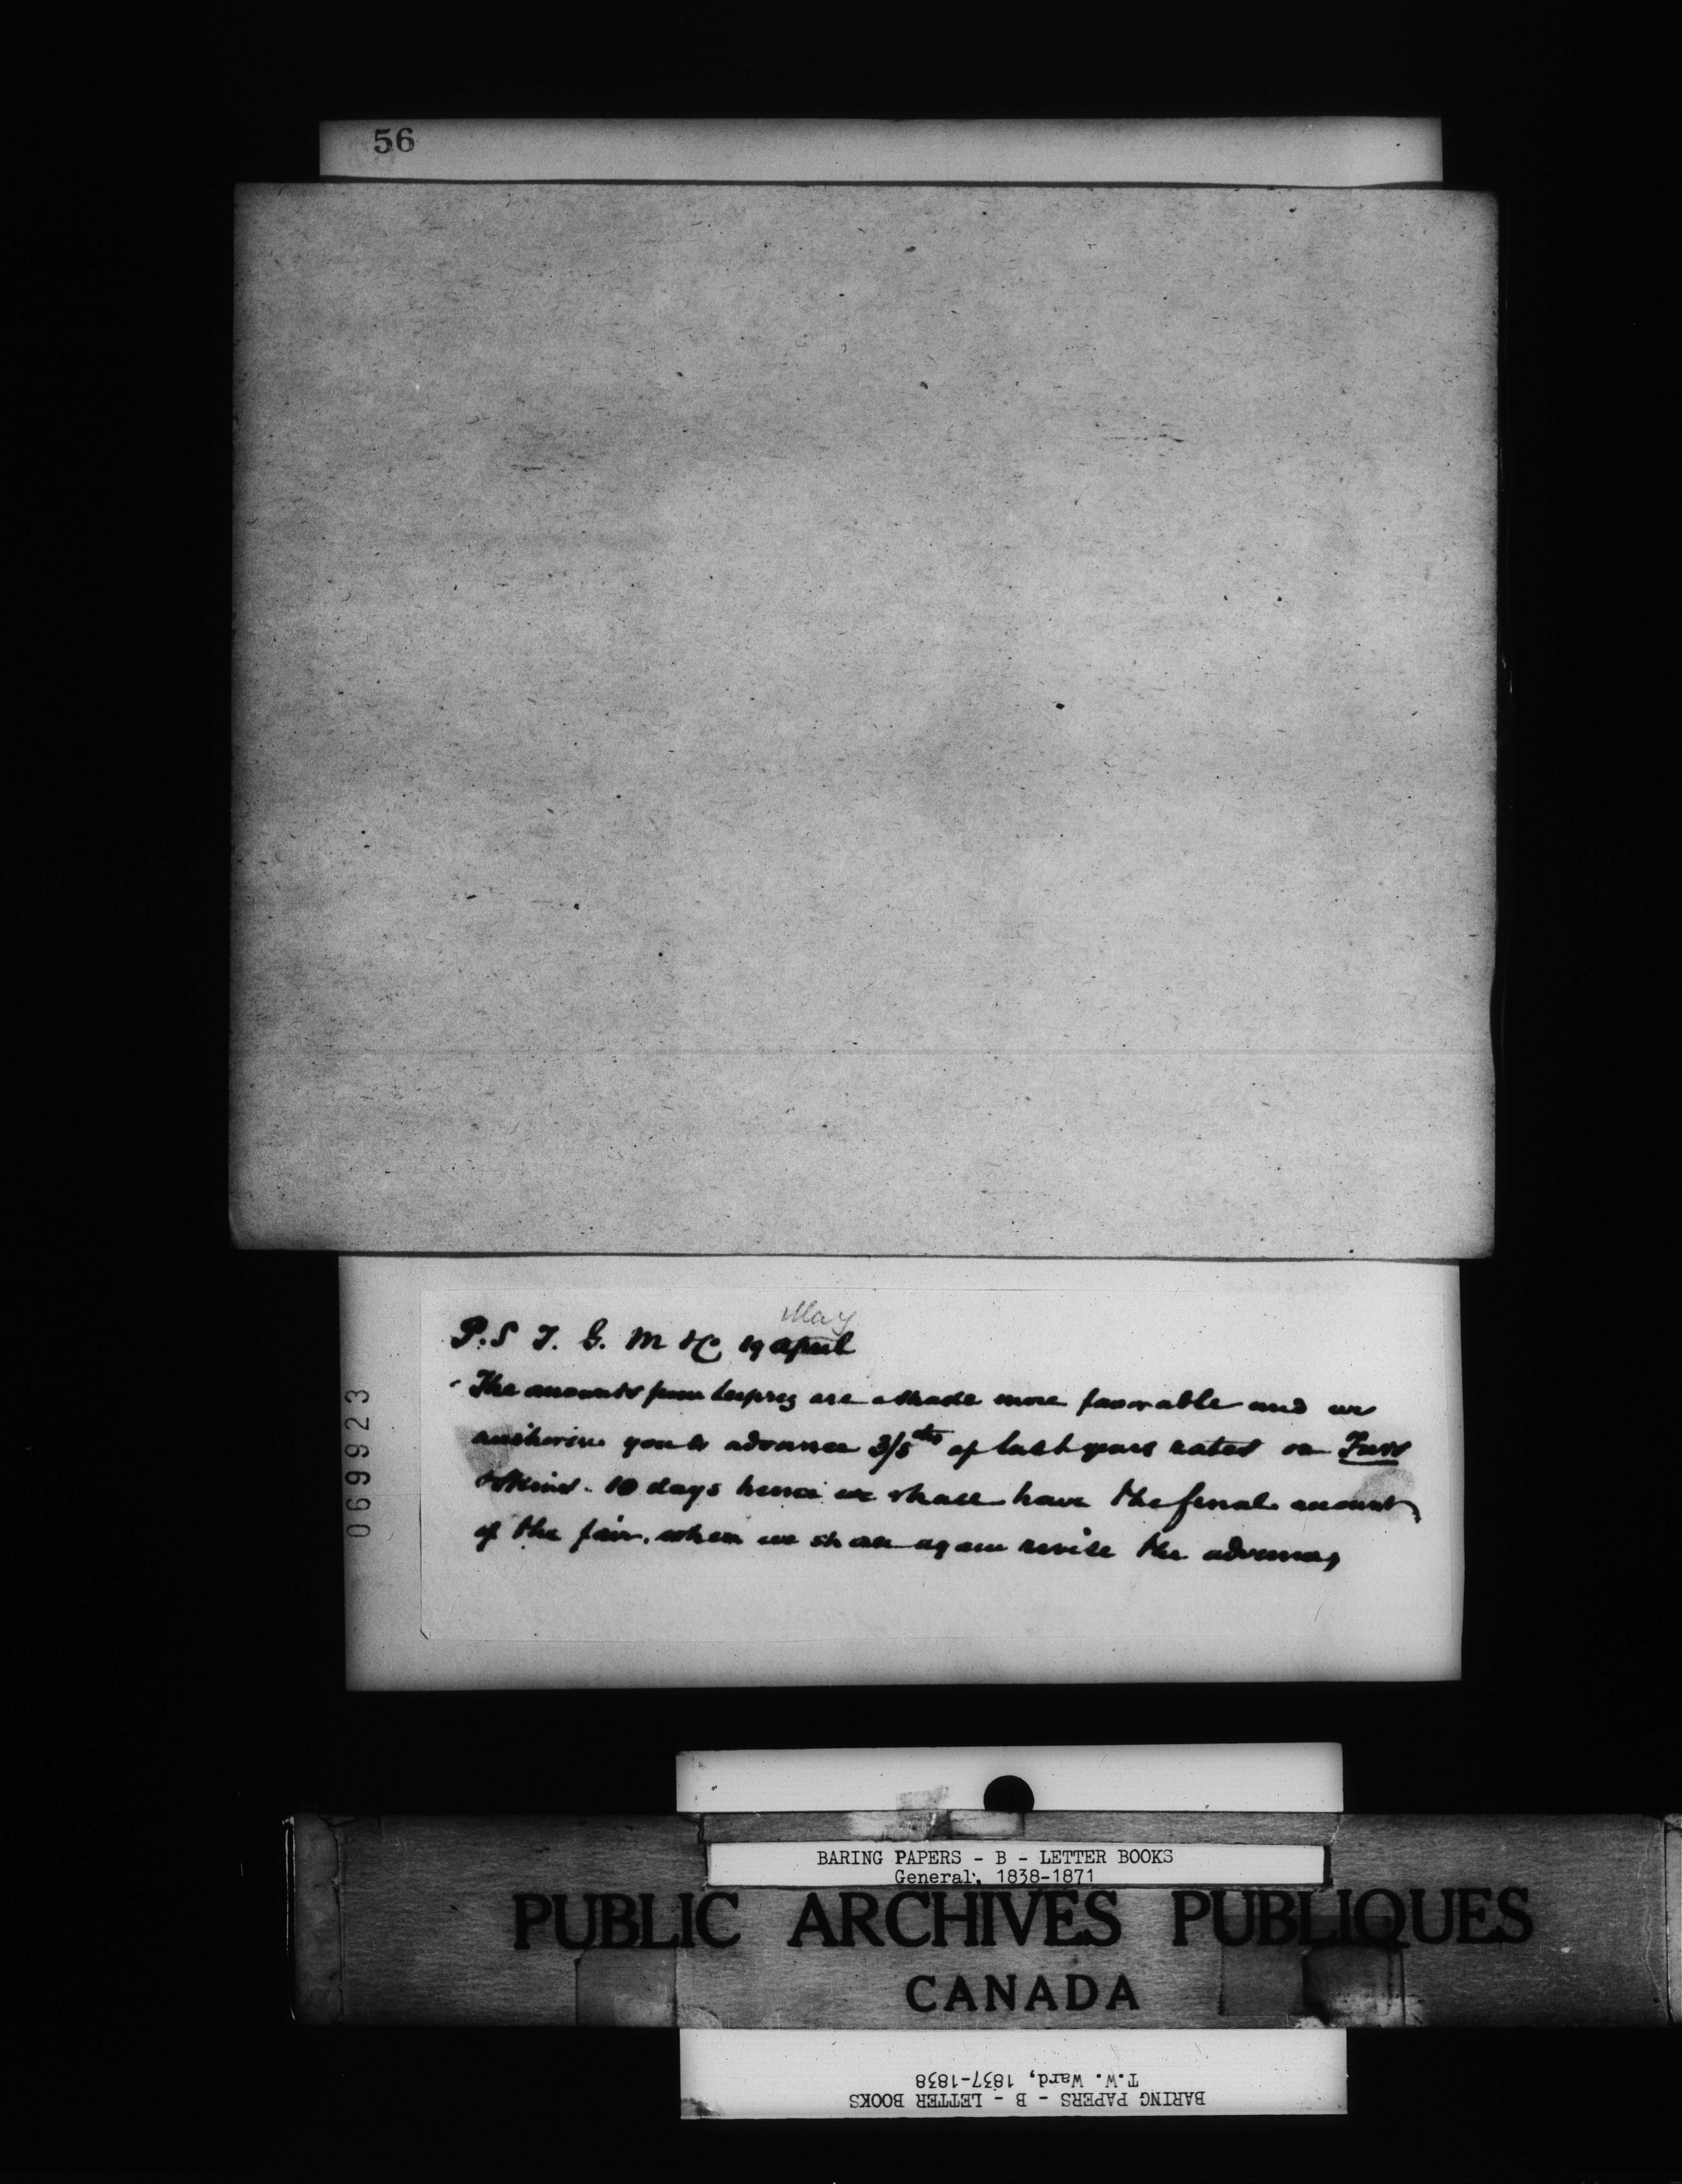 56
May
P.S J. G. M & C 19 April
The accounts from Leipzig are a shade more favorable and we
authorise you to advance 3/5ths of last years rates on Furs
& Skins. 10 days hence we shall have the final accounts
of the fair, when we shall again revise the advances
069923
BARING PAPERS - B - LETTER BOOKS
General, 1838-1871
PUBLIC ARCHIVES PUBLIQUES
CANADA
BARING PAPERS - B - LETTER BOOKS
T.W. Ward, 1837-1838